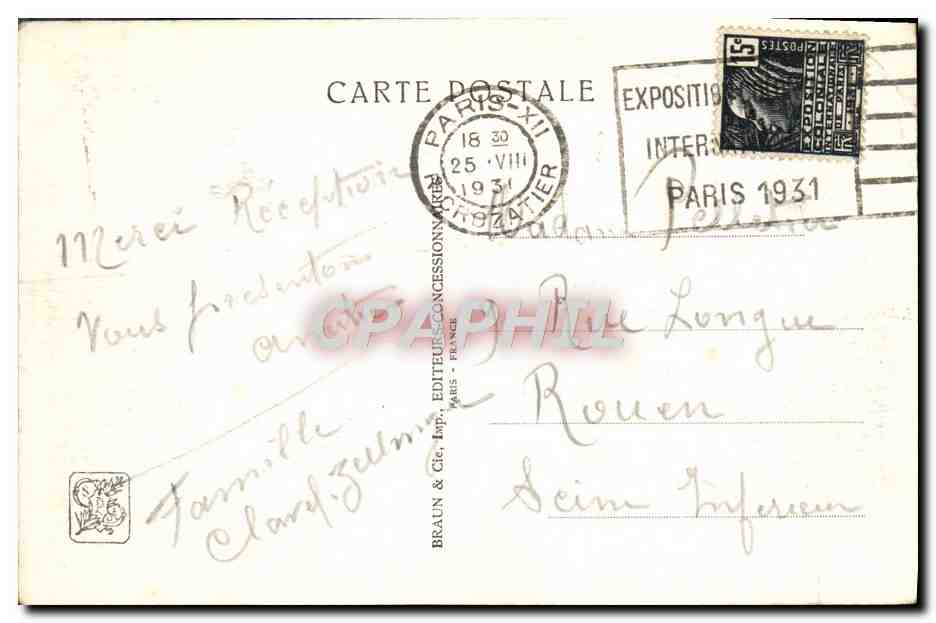 CARTE POSTALE
PARIS-XII
18 30
25 VIII
1931
R. CROZATIER
EXPOSITIO
INTER
PARIS 1931
15c
POSTES
EXPOSITION
COLONIALE
INTERNATIONALE
DE PARIS
1931
RF
Merci Réception
Vous présentons
amitiés
Famille
BRAUN & Cie, Imp., EDITEURS-CONCESSIONNAIRES
PARIS - FRANCE
Madame Pelletier
Rue Longue
Rouen
Seine Inferieure
CPAPHIL